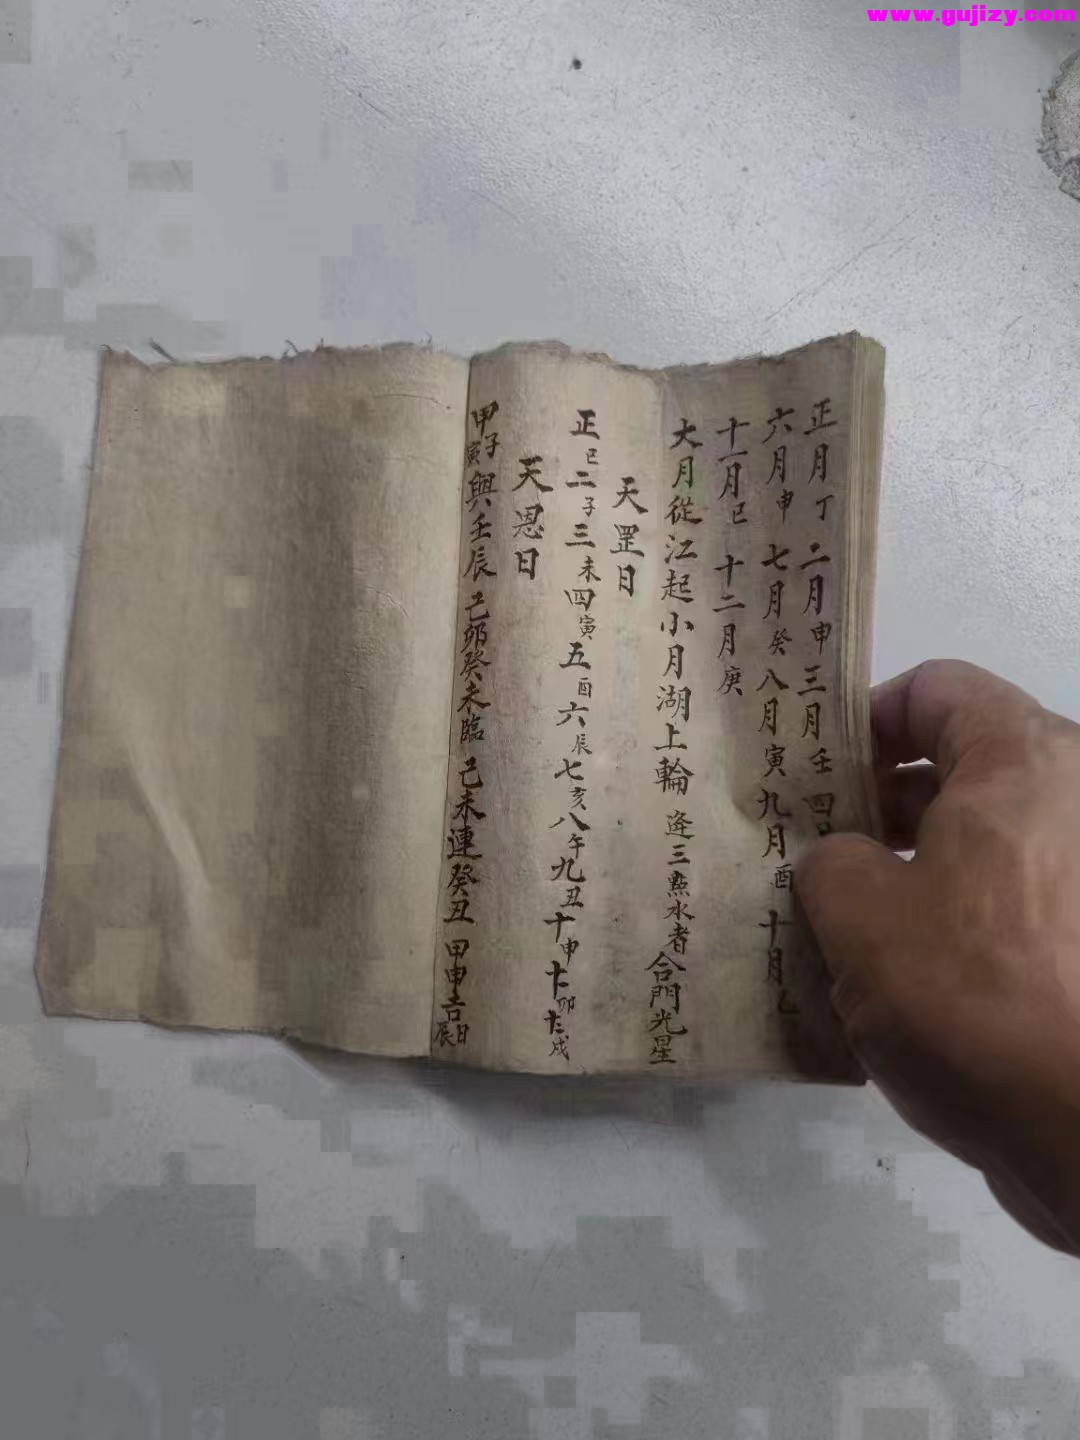 www.gujizy.com
正月丁 二月申 三月壬 四
六月申 七月癸 八月寅 九月酉 十月乙
十一月巳 十二月庚
大月從江起小月湖上輪 逄三點水者合門光星
天罡日
正巳二子三未四寅五酉六辰七亥八午九丑十申十一卯十二戌
天恩日
甲子寅與壬辰 己卯癸未臨 己未連癸丑 甲申吉日辰